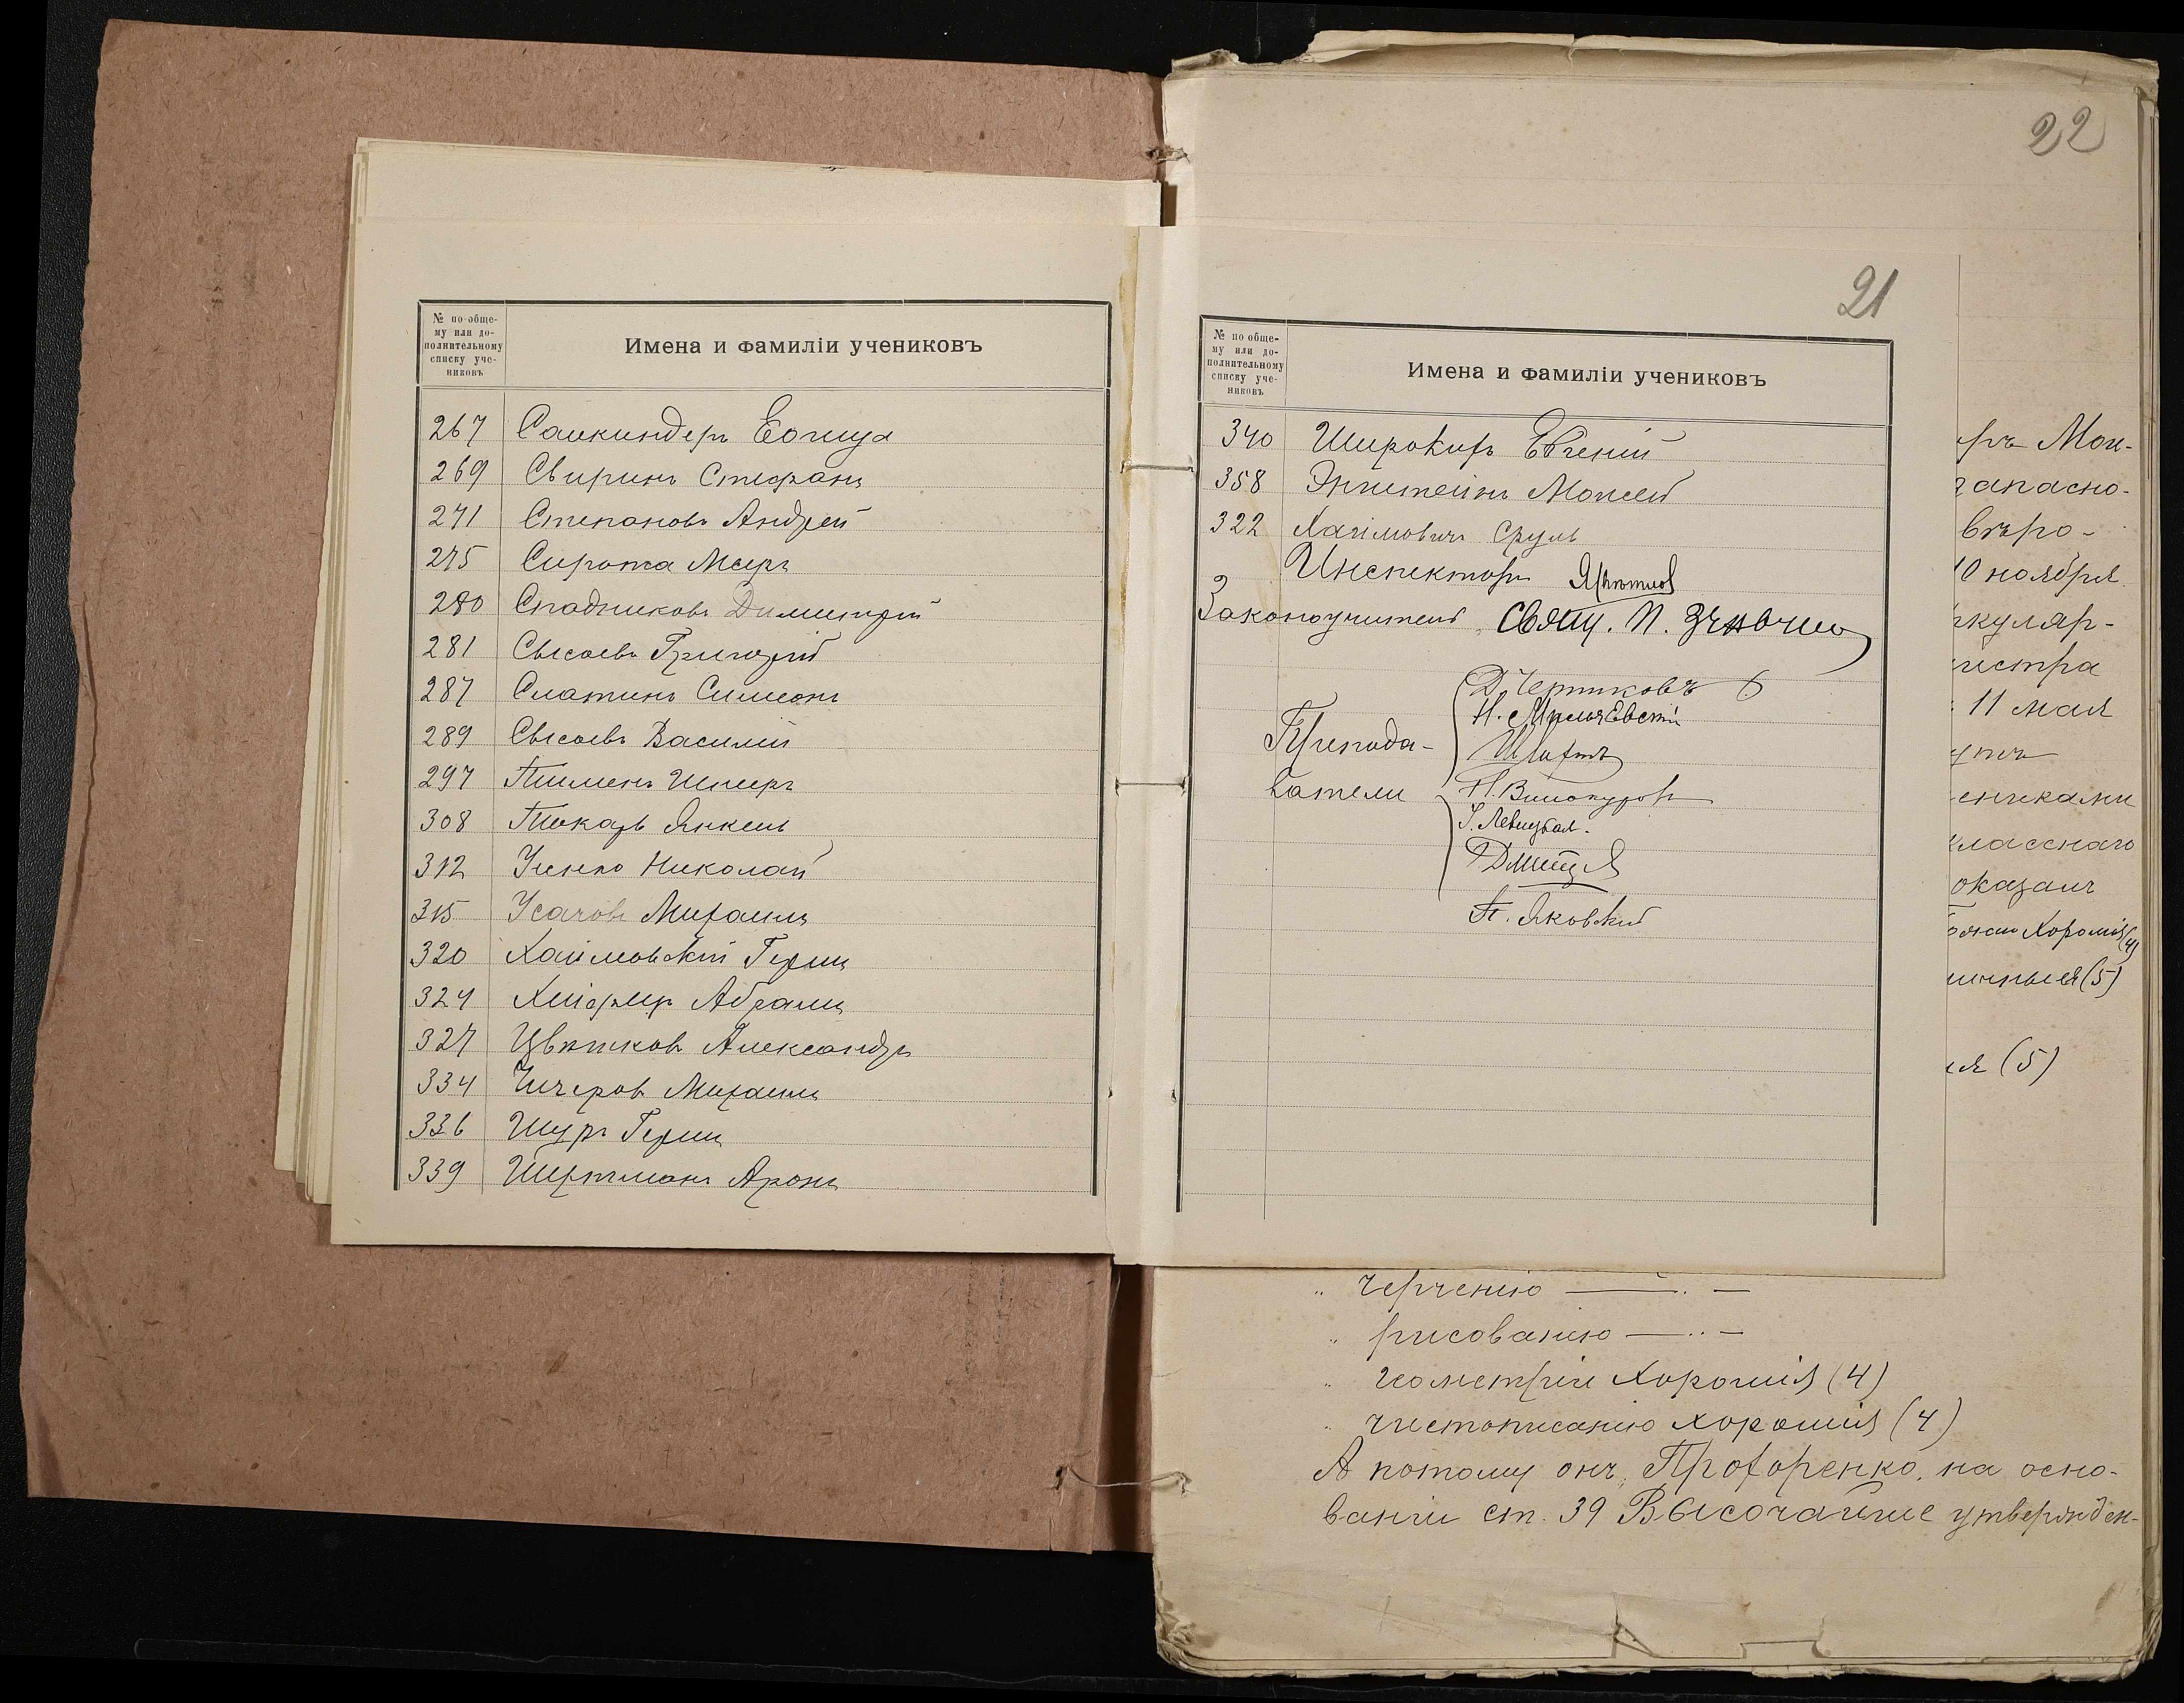 № по обще-
му или до-
полнительному
списку уче-
никовъ
Имена и фамиліи учениковъ
267 Саикиндеръ
269 Свиринъ Стефанъ
271 Степановъ Андрей
275 Сирота Мееръ
280 Сладниковъ Димитрій
281 Сысоевъ Григорій
287 Слатинъ Симеонъ
289 Сысоевъ Василій
297
308 Токарь Янкель
312 Усенко Николай
315 Усачовъ Михаилъ
320 Хаимовскій Гершъ
324 Абрамъ
327 Цвѣтковъ Александръ
334 Чичеровъ Михаилъ
336 Шуръ Гершъ
339 Шертманъ Аронъ
22
21
№ по обще-
му или до-
полнительному
списку уче-
никовъ
Имена и фамиліи учениковъ
340 Широкихъ Евгеній
358 Эпштейнъ Моисей
322 Хаимовичъ Сруль
Инспекторъ
Законоучитель Свящ. П.
Препода-
ватели
Д. Чертковъ
Н.
Н. Винокуровъ
Левицкая.
П. Яковскій
ръ Мои-
запасно-
вѣро-
10 ноября
ркуляр-
истра
11 мая
ениками
класснаго
оказалъ
Божію Хорошія (4)
(5)
ія (5)
„ черченію — „ —
„ рисованію — „ —
„ геометріи Хорошія (4)
„ чистописанію хорошія (4)
А потому онъ, Прохоренко, на осно-
ваніи ст. 39 Высочайше утвержден-